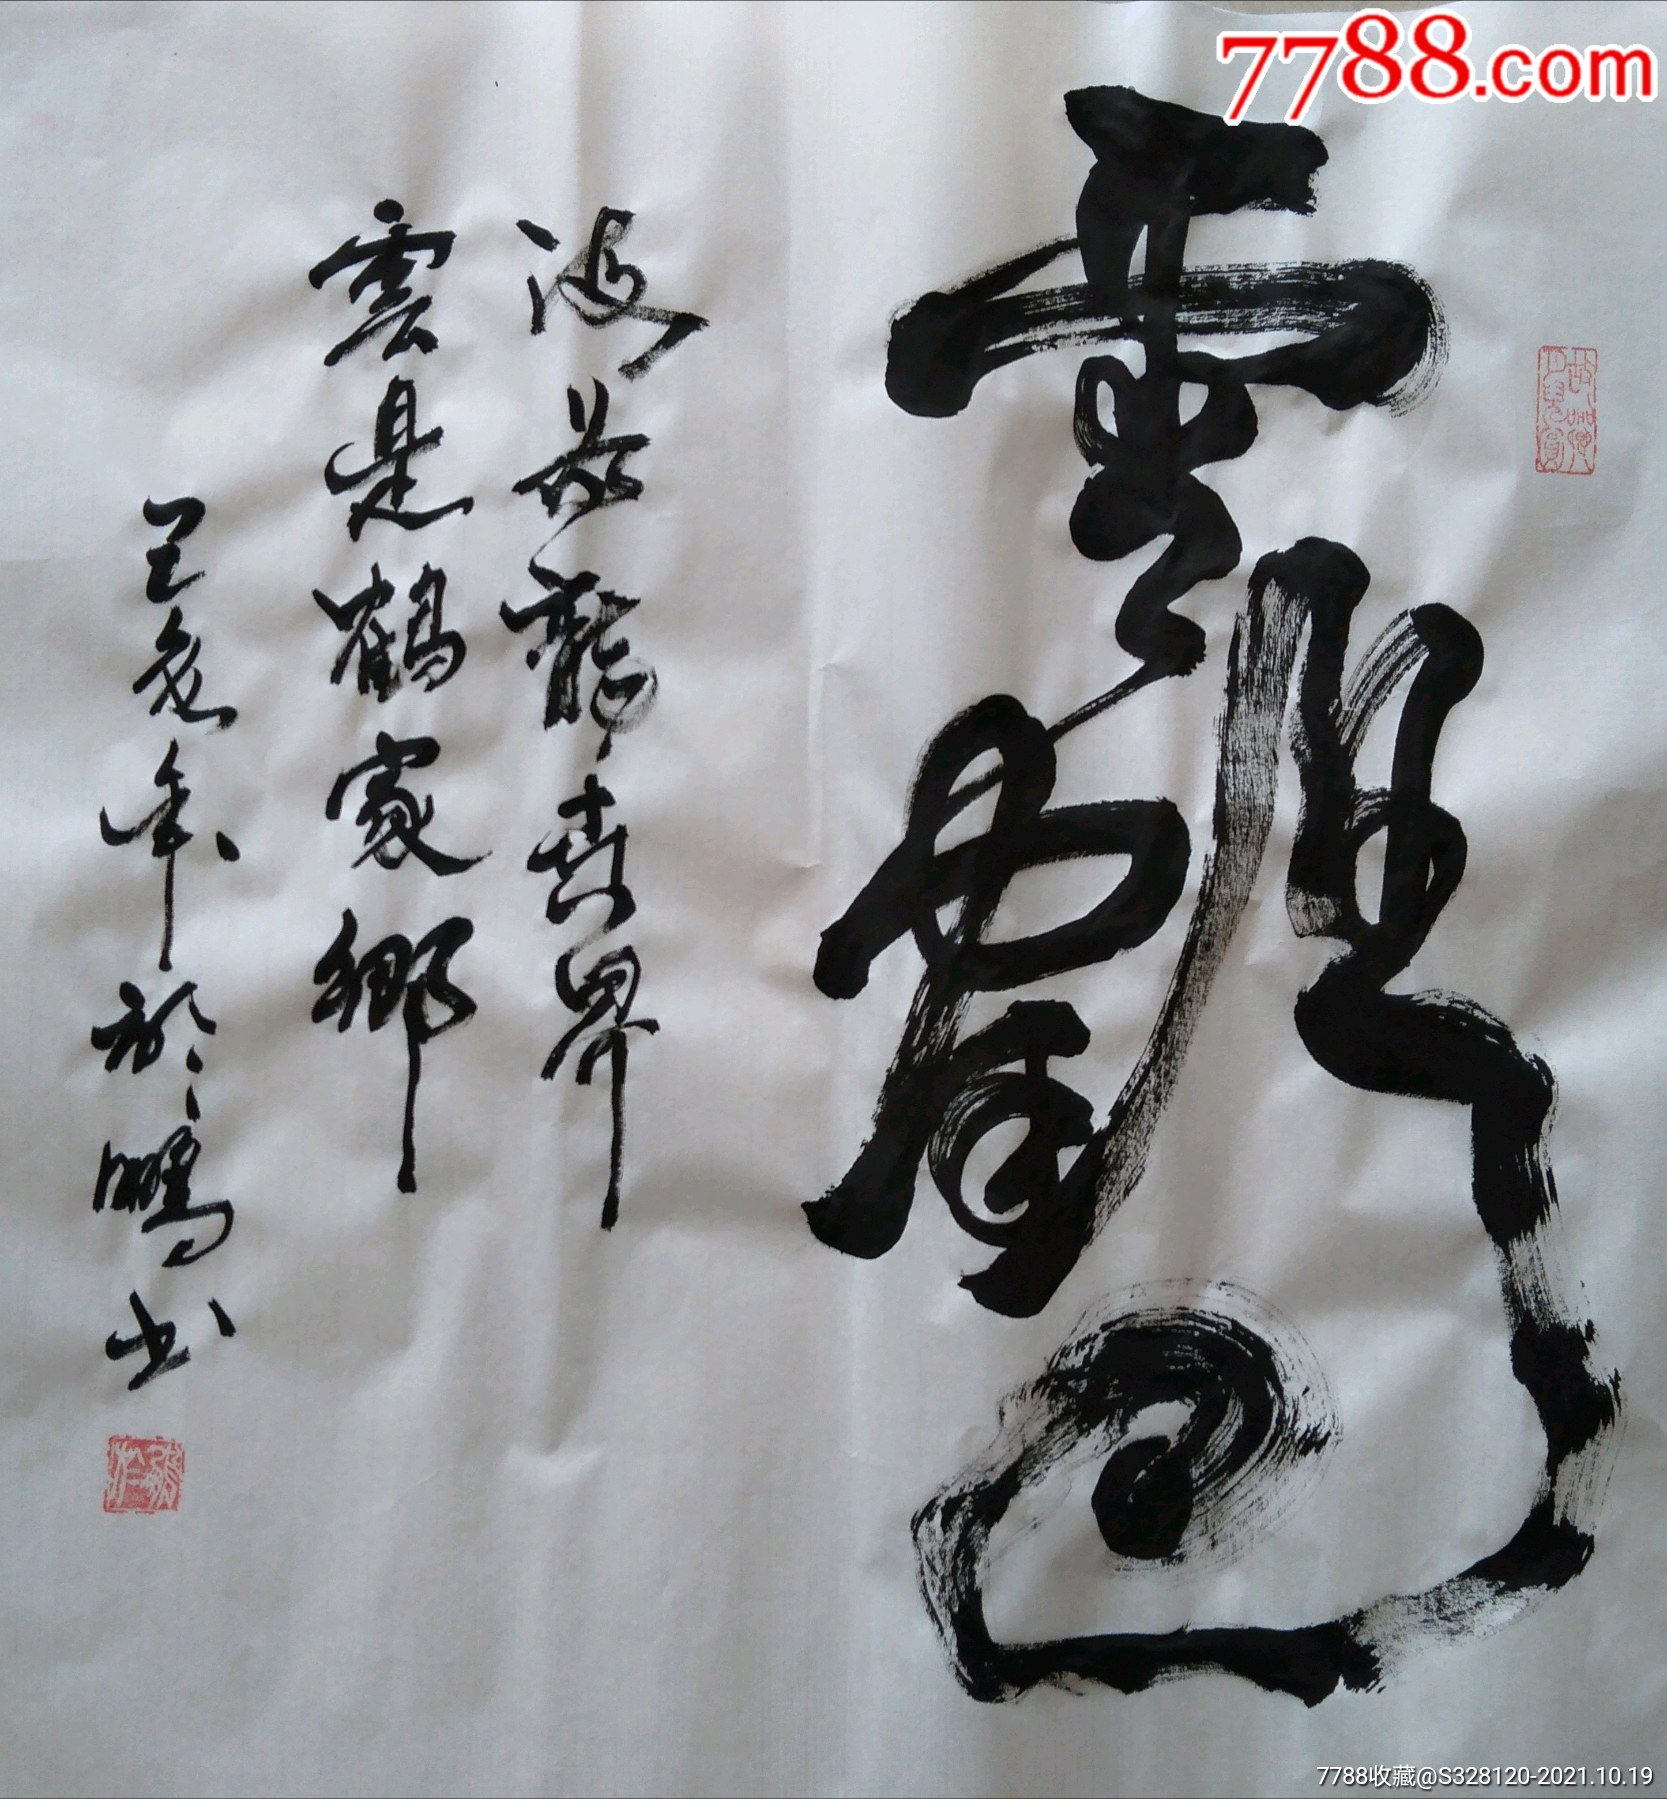 7788.com
海為龍世界
雲是鶴家鄉
己亥年於鵬书
7788收藏@S328120-2021.10.19